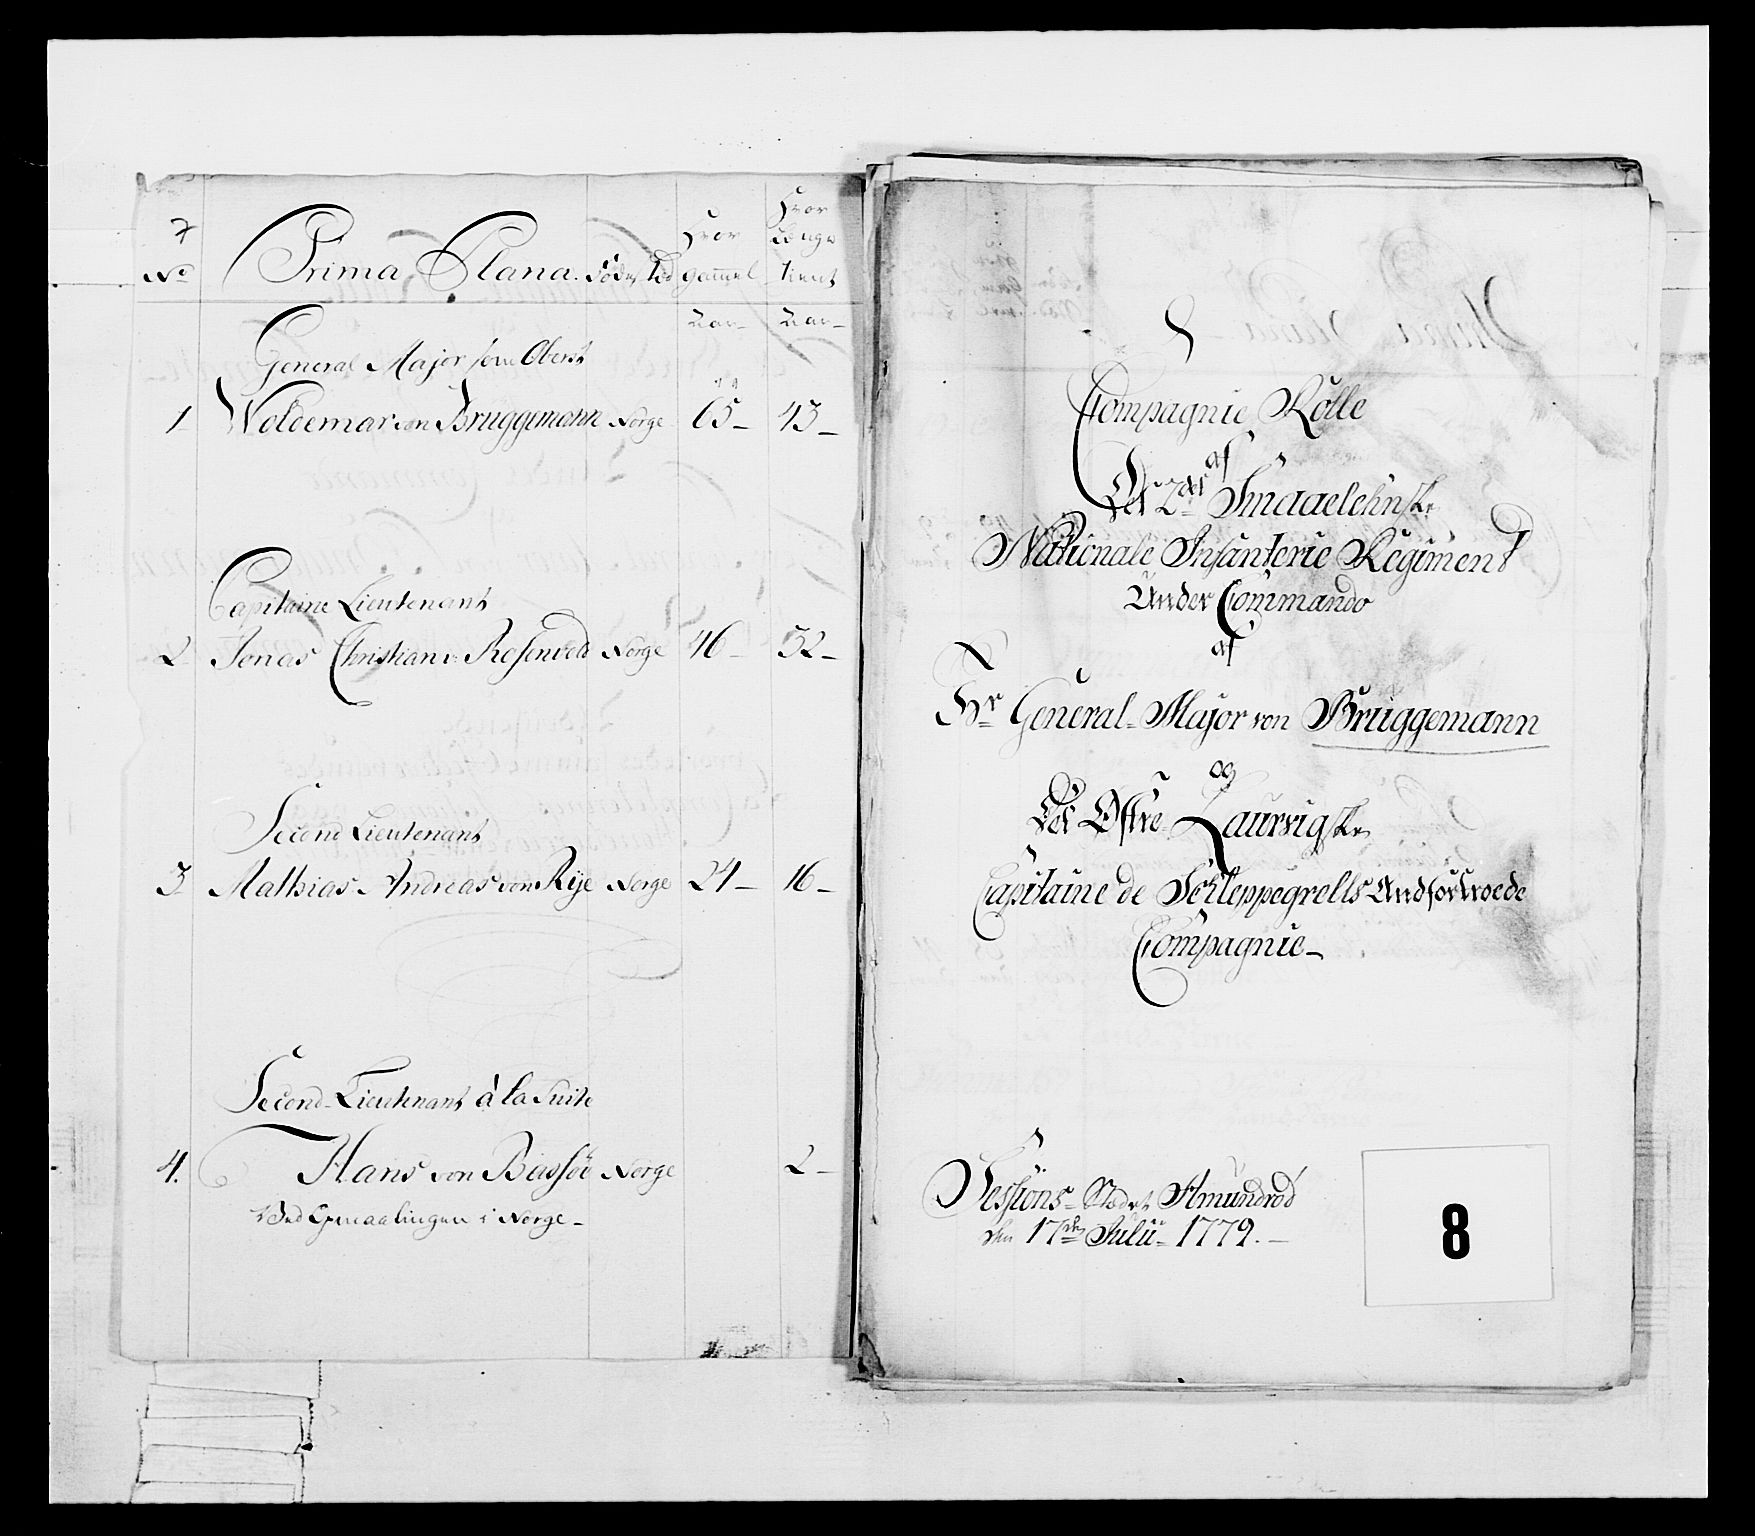 7
No Prima Plana. Føde Stæd Hvor gammel Hvor længe tient
Aar Aar
General Major som Oberst
1 Woldemar von Bruggemann Norge 65 43
Capitaine Lieutenant
2 Jonas Christian v: Rosenvold Norge 46 32
Second Lieutenant
3 Mathias Andreas von Rije Norge 24 16
Second Lieutenant à la Suite
4. Hans von Bassøe Norge 2
i Norge
8
Compagnie Rolle
af
Det 2det Smaaelehnske
Nationale Infanterie Regiment
Under Commando
af
Hr General Major von Bruggemann
og
Det Øftre Laurvigske
Capitaine de Schleppegrells Andfortroede
Compagnie
Sessions Stædet Amundrød
den 17de Julii 1779.
8